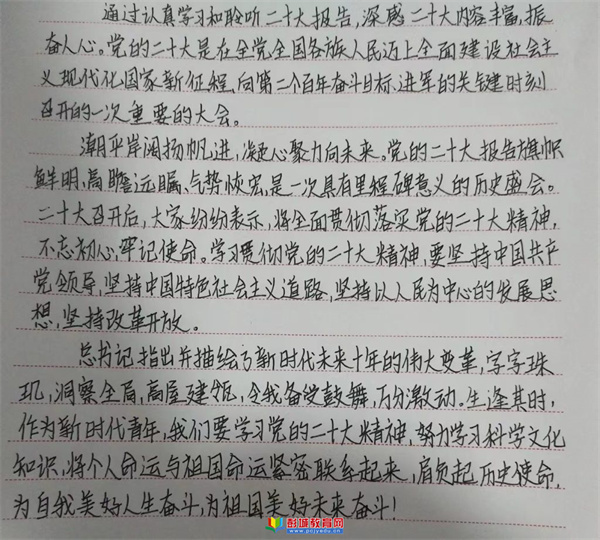 通过认真学习和聆听二十大报告,深感二十大内容丰富,振
奋人心。党的二十大是在全党全国各族人民迈上全面建设社会主
义现代化国家新征程,向第二个百年奋斗目标、进军的关键时刻
召开的一次重要的大会。
潮平岸阔扬帆进,凝心聚力向未来。党的二十大报告旗帜
鲜明、高瞻远瞩、气势恢宏,是一次具有里程碑意义的历史盛会。
二十大召开后,大家纷纷表示,将全面贯彻落实党的二十大精神,
不忘初心,牢记使命。学习贯彻党的二十大精神,要坚持中国共产
党领导,坚持中国特色社会主义道路,坚持以人民为中心的发展思
想,坚持改革开放。
总书记指出并描绘了新时代未来十年的伟大变革,字字珠
玑,洞察全局,高屋建瓴,令我备受鼓舞,万分激动。生逢其时,
作为新时代青年,我们要学习党的二十大精神,努力学习科学文化
知识,将个人命运与祖国命运紧密联系起来,肩负起历史使命,
为自我美好人生奋斗,为祖国美好未来奋斗!
彭城教育网
www.pcjyedu.cn